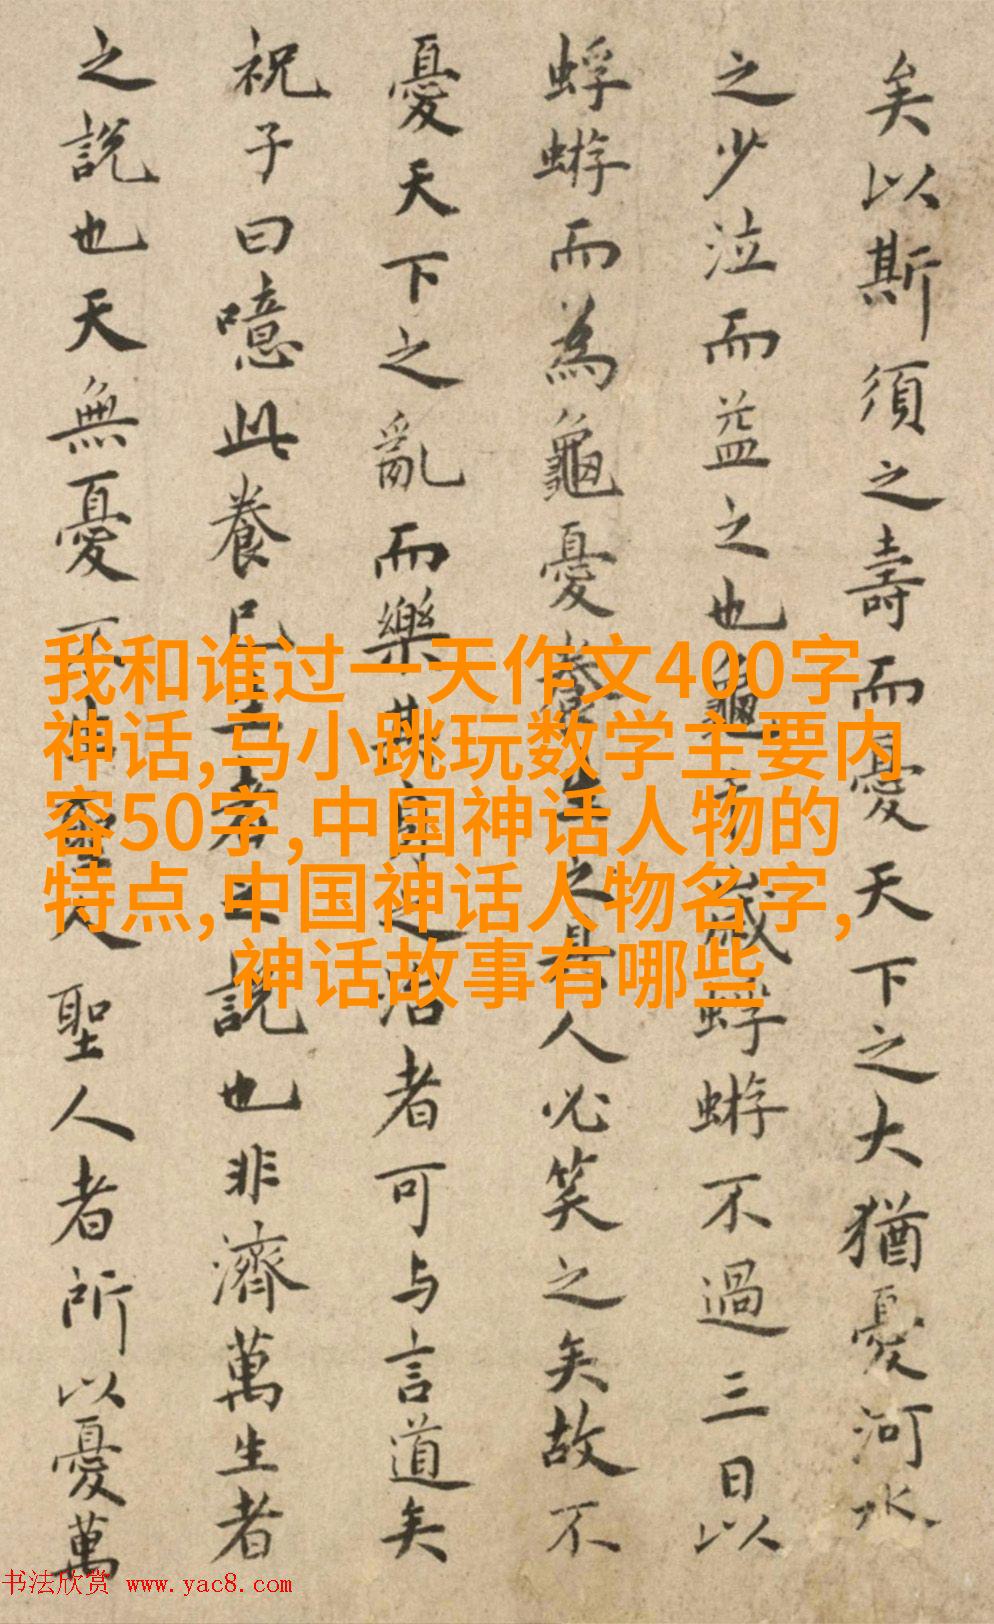 矣以斯須之壽而憂天下之大猶憂河水
之少泣而益之也龜歲蜉蝣不過三日以
蜉蝣而為龜憂養生之具人必笑之矣故不
憂天下之亂而樂其身之治者可与言道矣
祝子曰噫此養己生者之說也非濟萬生者
之說也天無憂不生聖人聖人者所以憂萬
我和谁过一天作文400字
神话,马小跳玩数学主要内
容50字,中国神话人物的
特点,中国神话人物名字,
神话故事有哪些
书法欣赏 www.yac8.com